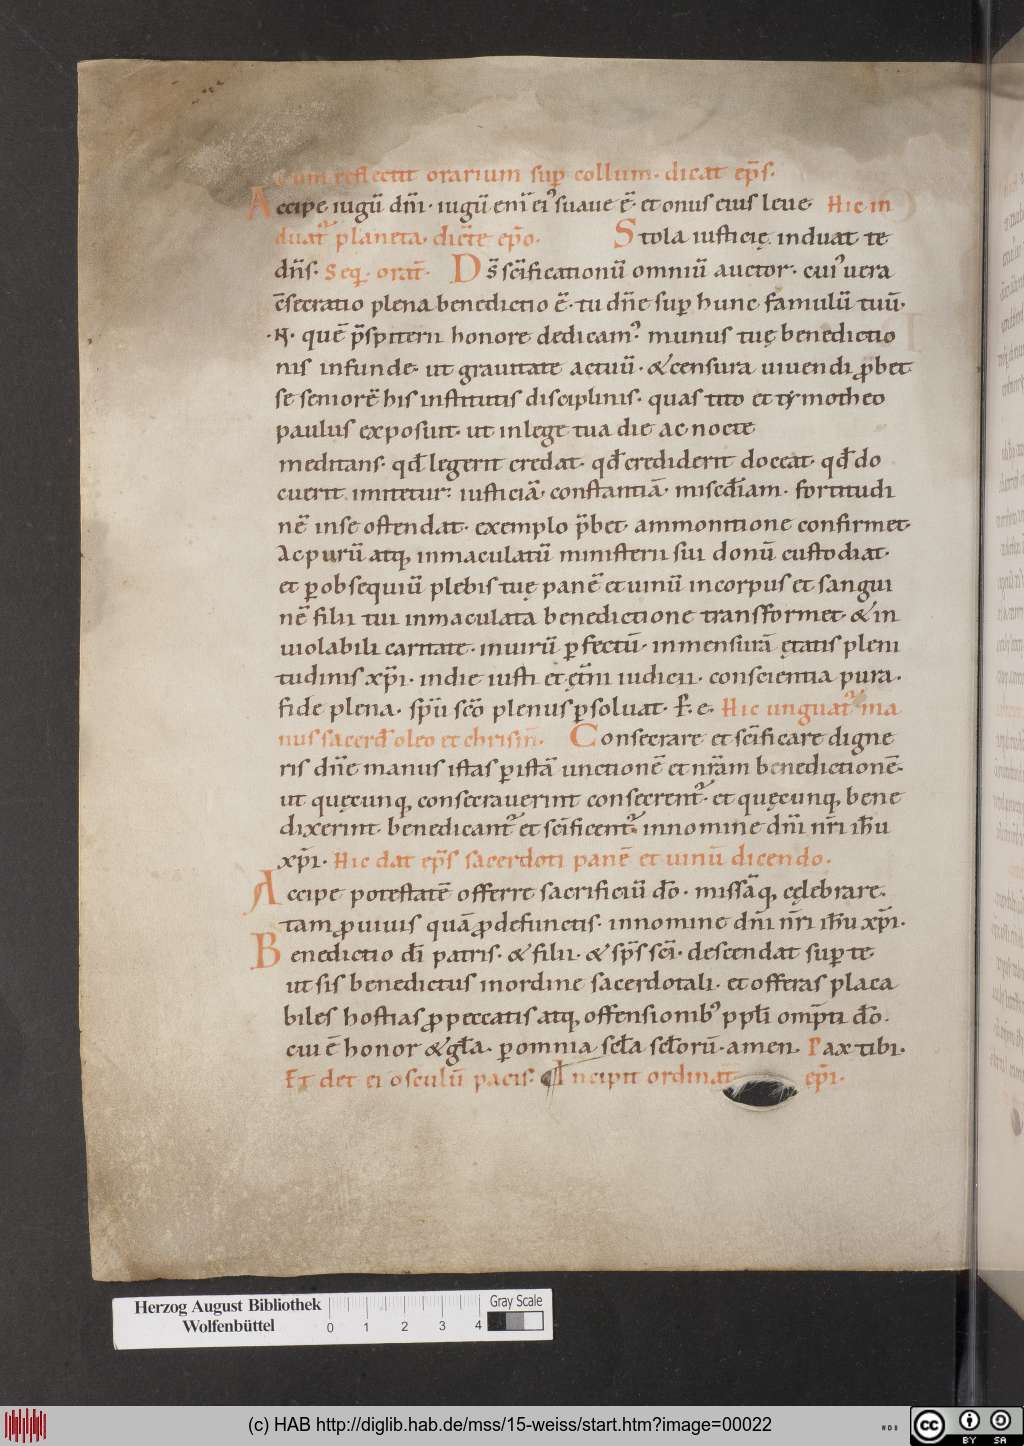 Cum reflectit orarium sup̄ collum· dicat ep̄s·
Accipe iugū dn̄i· iugū eni̅ ei᾽ suaue ē· et onus eius leue· Hic in
duat᾽ planeta· dicēte ep̄o· Stola iusticię induat te
dn̄s· Seq̄· orat̄· Ds̄ sc̄ificationū omniū auctor· cui᾽ uera
c̄secratio plena benedictio ē· tu dn̄e sup̄ hunc famulū tuū·
·N· quē p̄sbiterii honore dedicam᾽ munus tuę benedictio
nis infunde· ut grauitate actuū· & censura uiuendi ꝓbet
se seniorē his institutis disciplinis· quas tito et tymotheo
paulus exposuit· ut in lege tua die ac nocte
meditans· qd̄ legerit credat· qd̄ crediderit doceat· qd̄ do
cuerit imitetur· iusticiā· constantiā· mised̄iam· fortitudi
nē in se ostendat· exemplo p̄bet· ammonitione confirmet·
Ac purū atq, inmaculatū ministerii sui donū custodiat·
et ꝑ obsequiū plebis tuę panē et uinū in corpus et sangui
nē filii tui inmaculata benedictione transformet· & in
uiolabili caritate· in uirū ꝑfectū· in mensurā ętatis pleni
tudinis xp̄i· in die iusti et ęt̄ni iudicii· conscientia pura·
fide plena· sp̄u sc̄o plenus ꝑsoluat· P̄· e· Hic unguat᾽ ma
nus sacerd̄ oleo et chrism̄· Consecrare et sc̄ificare digne
ris dn̄e manus istas ꝑ istā unctionē et nr̄am benedictionē·
ut quęcunq, consecrauerint consecrent᾽· et quęcunq, bene
dixerint benedicant᾽ et sc̄ificent᾽· in nomine dn̄i nr̄i ih̄u
xp̄i· Hic dat ep̄s sacerdoti panē et uinū dicendo·
Accipe potestatē offerre sacrificiū do̅· missāq, cęlebrare·
tam ꝓ uiuis quā ꝓ defunctis· in nomine dn̄i nr̄i ih̄u xp̄i·
Benedictio di̅ patris· & filii· & sp̄s sc̄i· descendat sup̄ te
ut sis benedictus in ordine sacerdotali· et offeras placa
biles hostias ꝓ peccatis atq, offensionib᾽ ppl̄i omp̄ti do̅·
cui ē honor & gl̄a· ꝑ omnia sc̄la sc̄lorū· amen· Pax tibi·
Et det ei osculū pacis· Incipit ordinat̄ ep̄i·
Herzog August Bibliothek
Wolfenbüttel
0 1 2 3 4
Gray Scale
(c) HAB http://diglib.hab.de/mss/15-weiss/start.htm?image=00022
cc BY SA